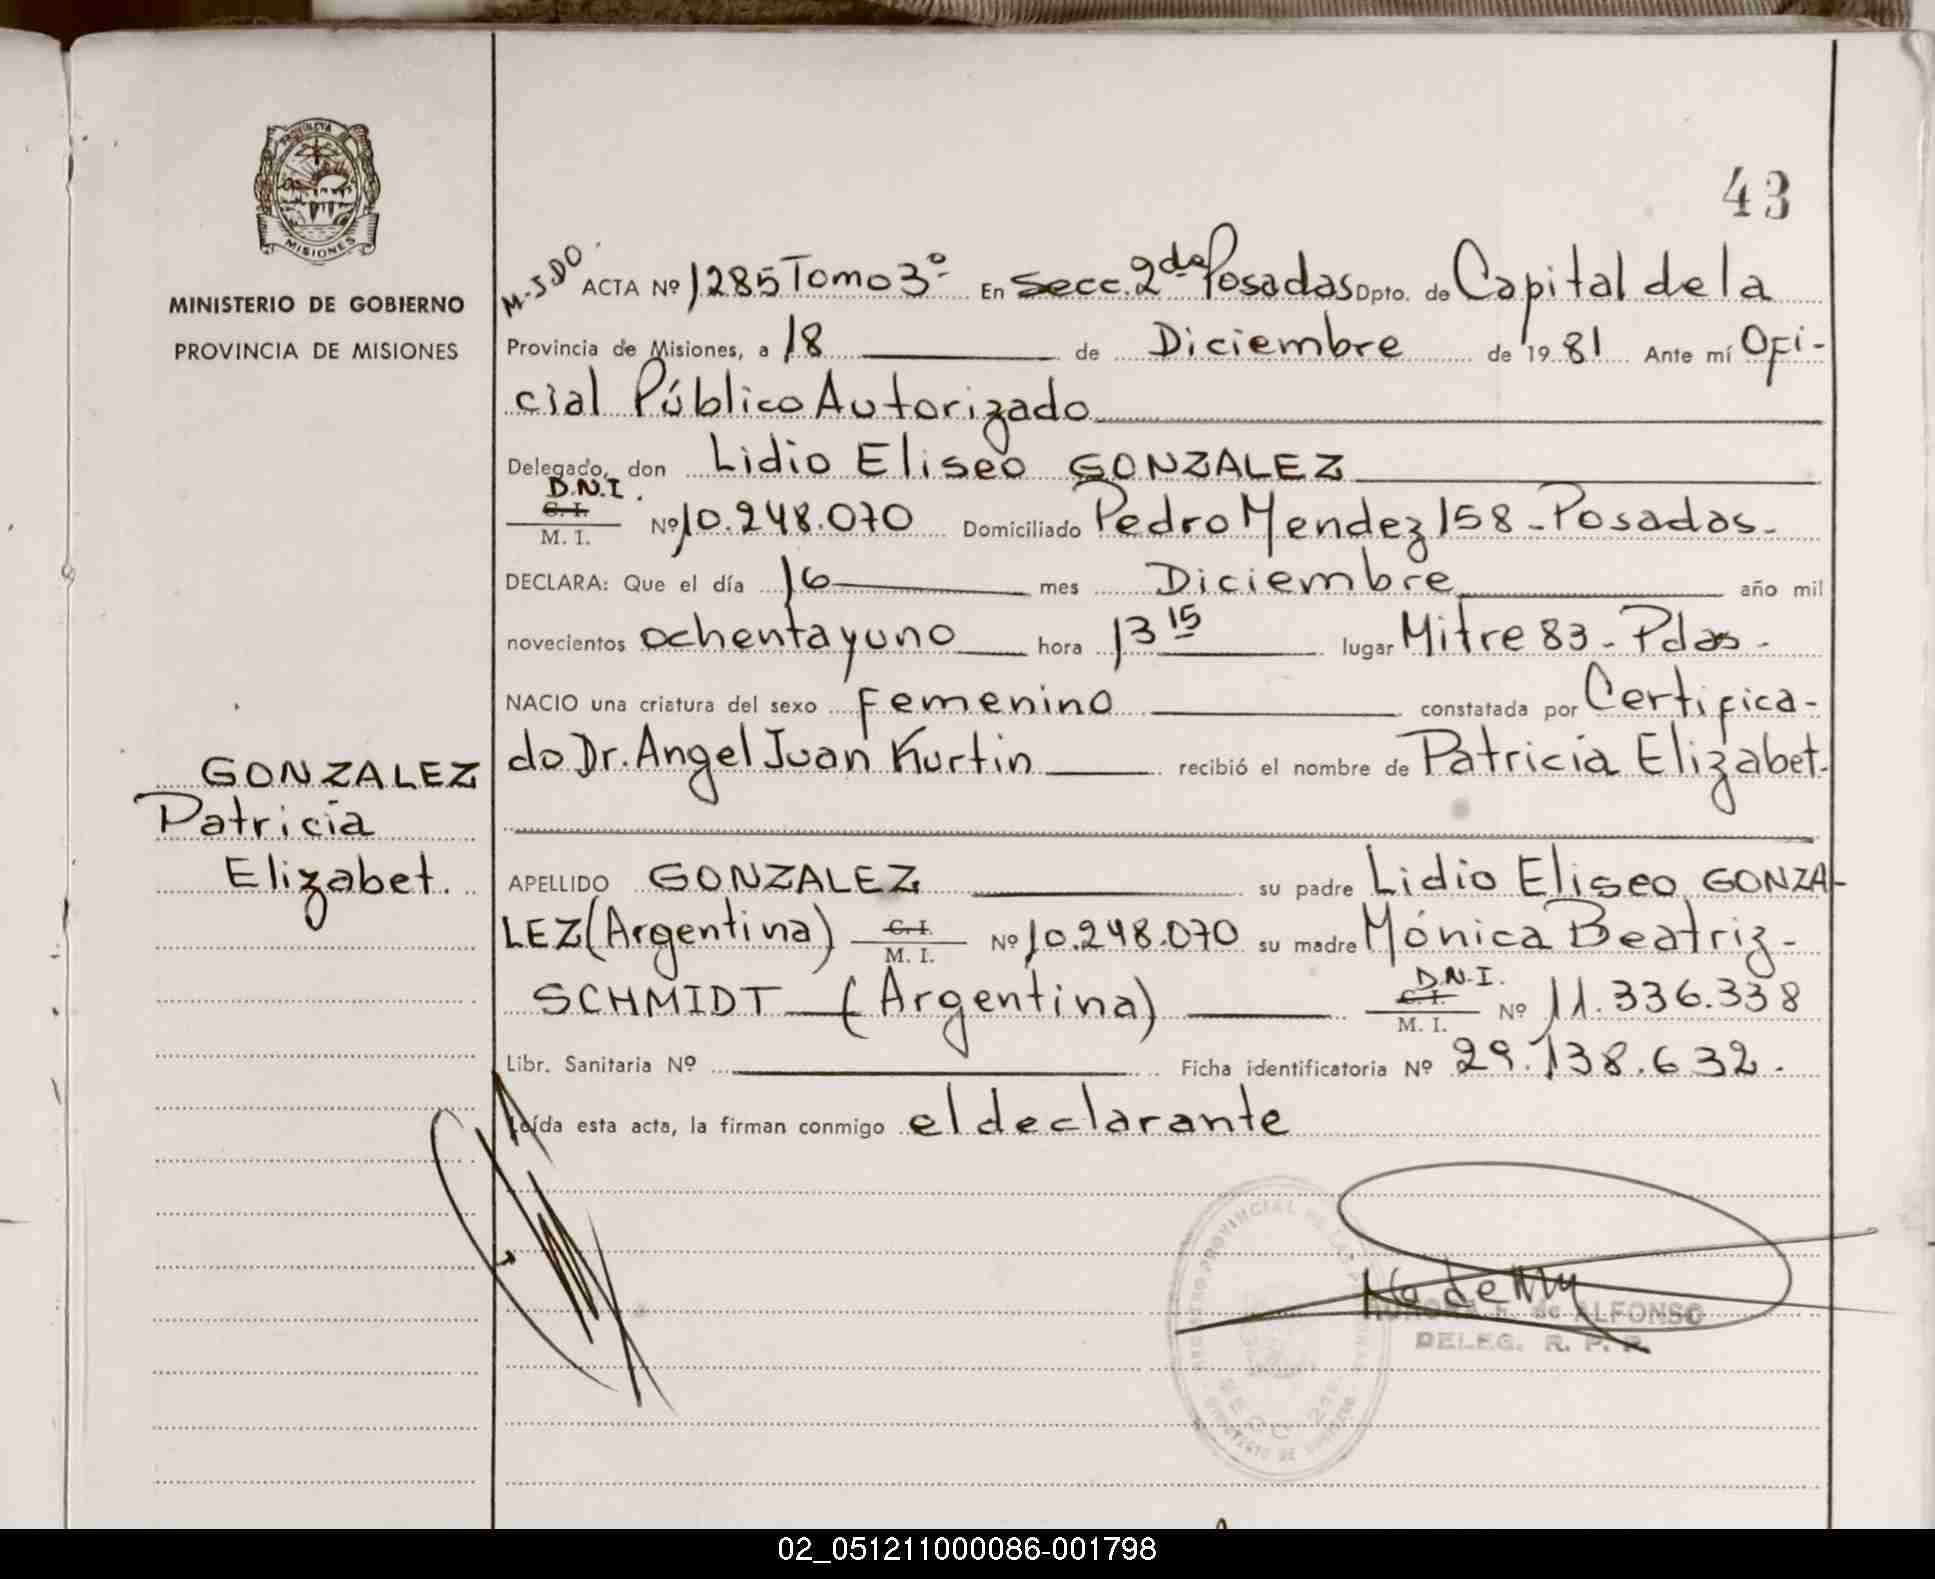 43
PROVINCIA
MISIONES
MINISTERIO DE GOBIERNO
PROVINCIA DE MISIONES
M-JDO. ACTA Nº 1285 Tomo 3º En Secc. 2da Posadas Dpto. de Capital de la
Provincia de Misiones, a 18 de Diciembre de 1981 Ante mí Ofi-
cial Público Autorizado
Delegado, don Lidio Eliseo GONZALEZ
D.N.I.
C. I.
M. I. Nº 10.248.070 Domiciliado Pedro Mendez 158 - Posadas -
DECLARA: Que el día 16 mes Diciembre año mil
novecientos ochenta y uno hora 13 15 lugar Mitre 83 - Pdas -
NACIO una criatura del sexo Femenino constatada por Certifica-
do Dr. Angel Juan Kurtin recibió el nombre de Patricia Elizabet.
GONZALEZ
Patricia
Elizabet.
APELLIDO GONZALEZ su padre Lidio Eliseo GONZA-
LEZ (Argentina) C. I. M. I. Nº 10.248.070 su madre Mónica Beatriz -
SCHMIDT (Argentina) D.N.I. C. I. M. I. Nº 11.336.338
Libr. Sanitaria Nº Ficha identificatoria Nº 29.138.632.
Leída esta acta, la firman conmigo el declarante
REGISTRO PROVINCIAL DE LAS PERSONAS
AURORA F. de ALFONSO
DELEG. R. P. P.
02_051211000086-001798